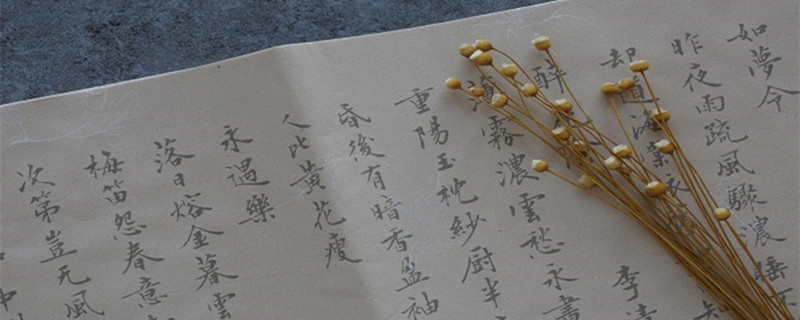 如夢令
昨夜雨疏風驟濃睡不
却道海棠依舊知
李清
醉
薄霧濃雲愁永晝
重陽玉枕紗厨半
昏後有暗香盈袖
人比黃花瘦
永遇樂
落日熔金暮雲
梅笛怨春意
次第豈无風
中